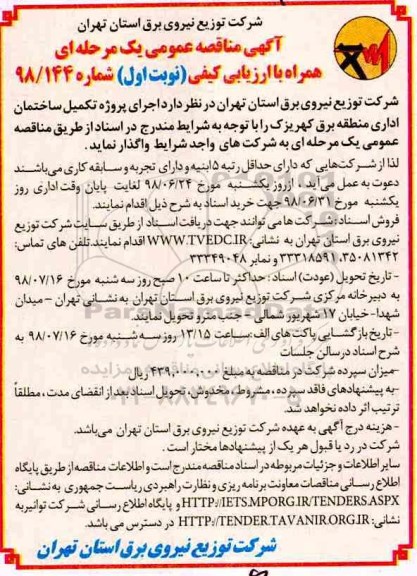 شرکت توزیع نیروی برق استان تهران
آگهی مناقصه عمومی یک مرحله ای
همراه با ارزیابی کیفی (نوبت اول) شماره ۹۸/۱۴۴
شرکت توزیع نیروی برق استان تهران در نظر دارد اجرای پروژه تکمیل ساختمان
اداری منطقه برق کهریزک را با توجه به شرایط مندرج در اسناد از طریق مناقصه
عمومی یک مرحله ای به شرکت های واجد شرایط واگذار نماید.
لذا از شرکت‌هایی که دارای حداقل رتبه ۵ ابنیه و دارای تجربه و سابقه کاری می‌باشند
دعوت به عمل می‌آید ، از روز یکشنبه مورخ ۹۸/۰۶/۲۴ لغایت پایان وقت اداری روز
یکشنبه مورخ ۹۸/۰۶/۳۱ جهت خرید اسناد به شرح ذیل اقدام نمایند.
فروش اسناد: شرکت‌ها می‌توانند جهت دریافت اسناد از طریق سایت شرکت توزیع
نیروی برق استان تهران به نشانی: WWW.TVEDC.IR اقدام نمایند. تلفن های تماس:
۳۵۰۸۱۳۴۲، ۳۳۳۱۸۵۹۱ و نمابر ۳۳۳۴۹۰۴۸
- تاریخ تحویل (عودت) اسناد: حداکثر تا ساعت ۱۰ صبح روز سه شنبه مورخ ۹۸/۰۷/۱۶
به دبیرخانه مرکزی شرکت توزیع نیروی برق استان تهران به نشانی تهران - میدان
شهدا- خیابان ۱۷ شهریور شمالی - جنب مترو تحویل نمایند.
- تاریخ بازگشایی پاکت های الف: ساعت ۱۳/۱۵ روز سه شنبه مورخ ۹۸/۰۷/۱۶ به
شرح اسناد در سالن جلسات
-میزان سپرده شرکت در مناقصه به مبلغ ۴۳۹٫۰۰۰٫۰۰۰ ریال
-به پیشنهادهای فاقد سپرده، مشروط، مخدوش، تحویل اسناد بعد از انقضای مدت، مطلقاً
ترتیب اثر داده نخواهد شد.
- هزینه درج آگهی به عهده شرکت توزیع نیروی برق استان تهران می‌باشد.
شرکت در رد یا قبول هر یک از پیشنهادها مختار است .
سایر اطلاعات و جزئیات مربوطه در اسناد مناقصه مندرج است و اطلاعات مناقصه از طریق پایگاه
اطلاع رسانی مناقصات معاونت برنامه ریزی و نظارت راهبردی ریاست جمهوری به نشانی:
HTTP://IETS.MPORG.IR/TENDERS.ASPX و پایگاه اطلاع رسانی شرکت توانیر به
نشانی: HTTP://TENDER.TAVANIR.ORG.IR در دسترس می باشد.
شرکت توزیع نیروی برق استان تهران